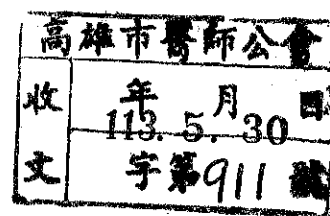 高雄市醫師公會
收文
年 月 日
113. 5. 30
字第911號